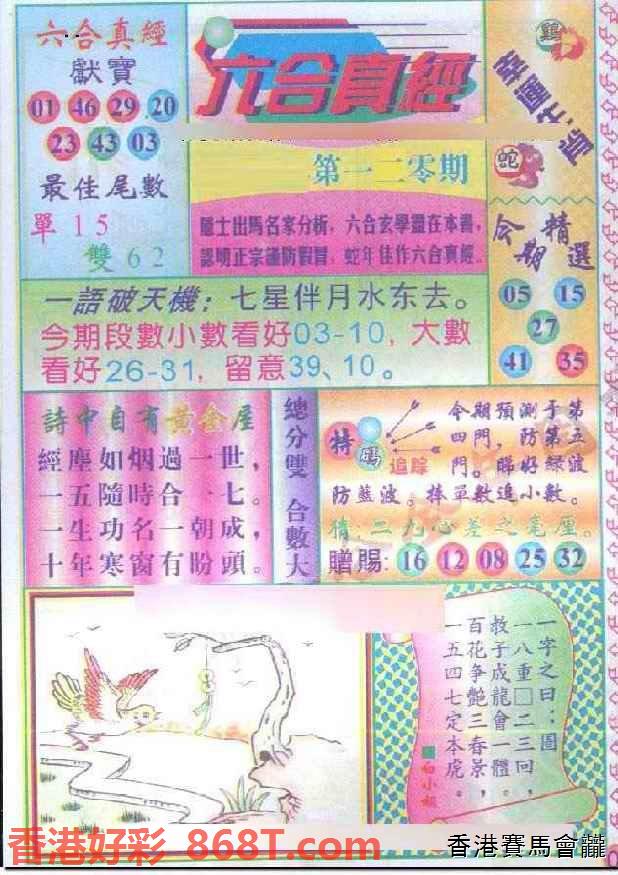 六合真經
獻寶
01 46 29 20
23 43 03
最佳尾數
單15
雙62
六合真經
第一二零期
隱士出馬名家分析，六合玄學盡在本書，
認明正宗謹防假冒，蛇年佳作六合真經。
雞
蛇
今期精選
05 15
27
41 35
一語破天機：七星伴月水东去。
今期段數小數看好03-10，大數
看好26-31，留意39、10。
詩中自有黃金屋
經塵如烟過一世，
一五隨時合一七。
一生功名一朝成，
十年寒窗有盼頭。
總分雙 合數大
特碼
追踪
今期預測于第
四門，防第五
門。睇好綠波
防藍波。捧單數追小數。
猜：二九心差之毫厘。
贈賜：16 12 08 25 32
一字之曰：圖
一八重□二三回，
救子成龍會一體，
百花争艷三春景，
一五四七定本虎。
■白小姐
香港好彩 868T.com
香港賽馬會